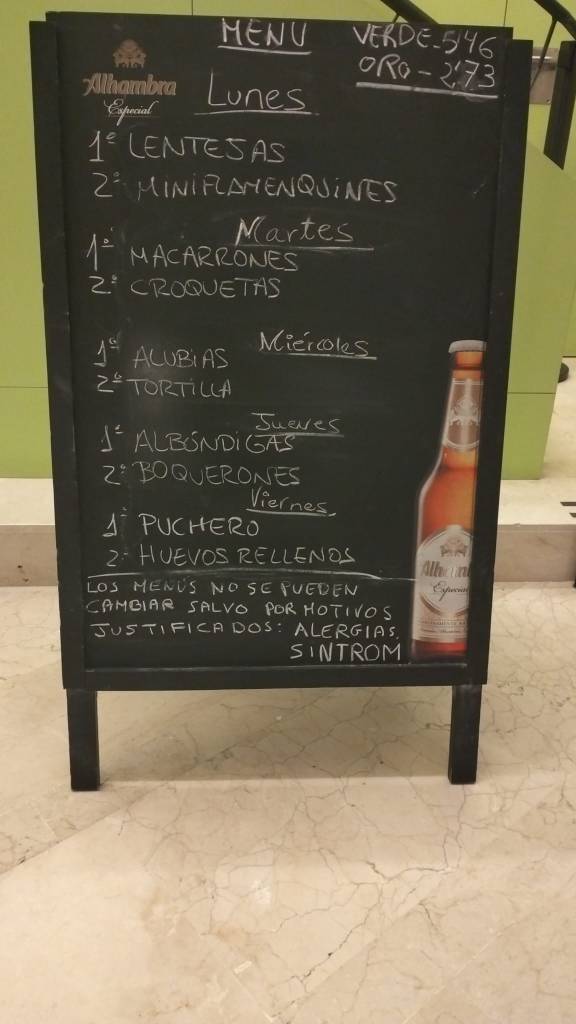 MENU
VERDE-5'46
ORO-2'73
Alhambra
Especial
Lunes
1º LENTEJAS
2º MINIFLAMENQUINES
Martes
1º MACARRONES
2º CROQUETAS
Miércoles
1º ALUBIAS
2º TORTILLA
Jueves
1º ALBÓNDIGAS
2º BOQUERONES
Viernes
1º PUCHERO
2º HUEVOS RELLENOS
LOS MENÚS NO SE PUEDEN
CAMBIAR SALVO POR MOTIVOS
JUSTIFICADOS: ALERGIAS,
SINTROM
Alhambra
Especial